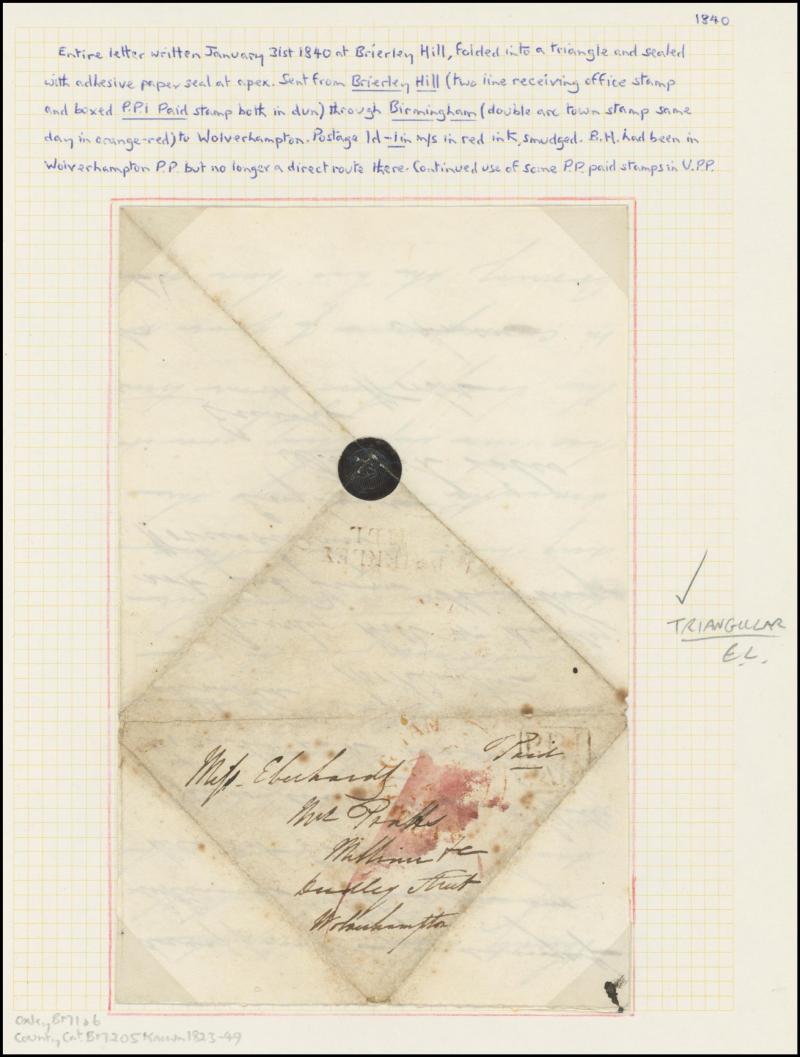 1840
Entire letter written January 31st 1840 at Brierley Hill, folded into a triangle and sealed
with adhesive paper seal at apex. Sent from Brierley Hill (two line receiving office stamp
and boxed P.P1 Paid stamp both in dun) through Birmingham (double arc town stamp same
day in orange-red) to Wolverhampton. Postage 1d - 1 in m/s in red ink, smudged. B.H. had been in
Wolverhampton P.P. but no longer a direct route there. Continued use of some P.P. paid stamps in U.P.P.
TRIANGULAR
E.L.
Paid
Miss Eberhardt
Mrs
Milliner &c
Dudley Street
Wolverhampton
Oxley BM106
County Cat. BM205 Known 1823-49